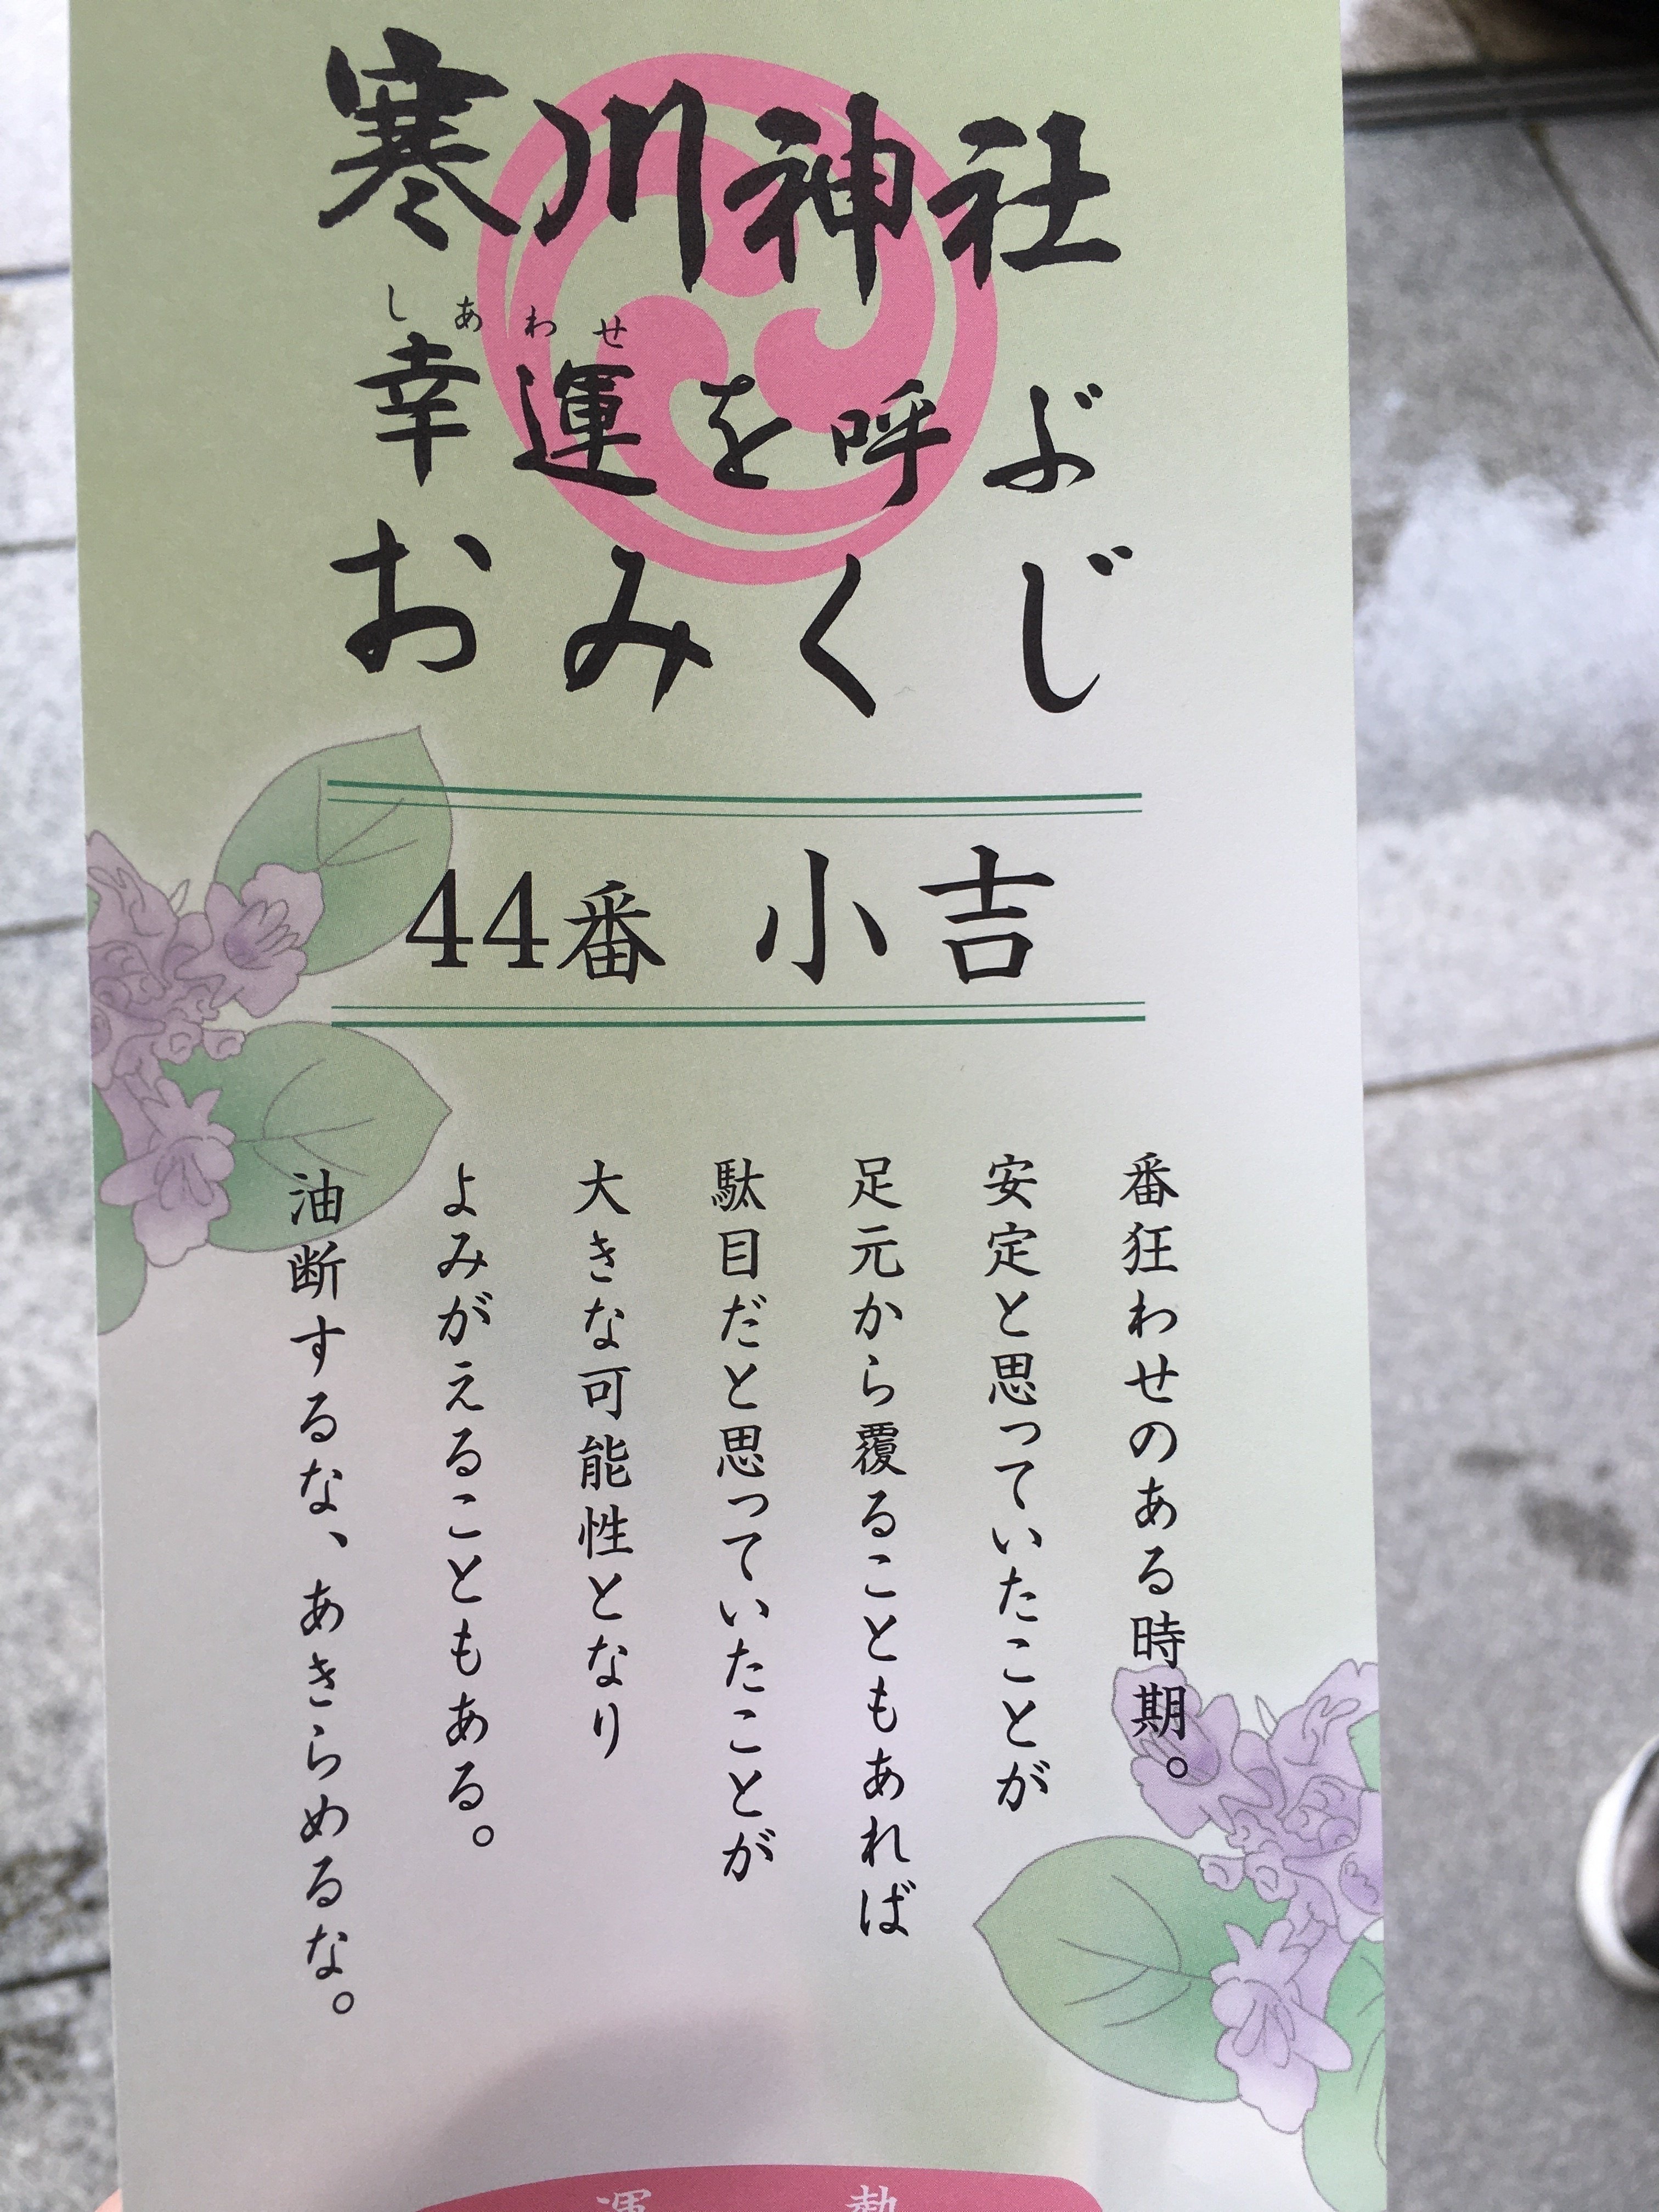 寒川神社
しあわせ
幸運を呼ぶ
おみくじ
44番 小吉
番狂わせのある時期。
安定と思っていたことが
足元から覆ることもあれば
駄目だと思っていたことが
大きな可能性となり
よみがえることもある。
油断するな、あきらめるな。
運 勢